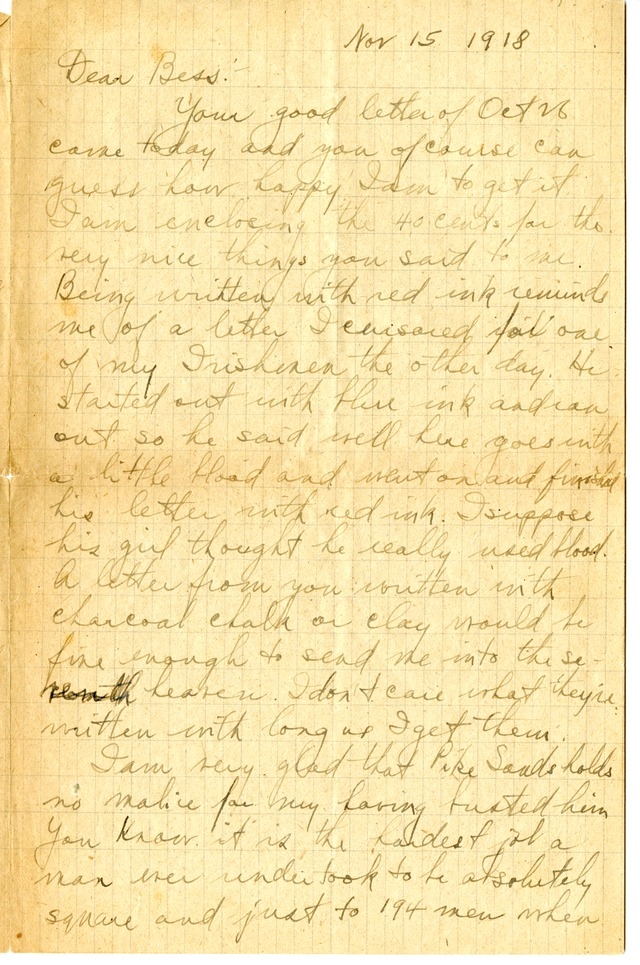 Nov 15 1918
Dear Bess:-
Your good letter of Oct 26
came today and you of course can
guess how happy I am to get it
I am enclosing the 40 cents for the
very nice things you said to me.
Being written with red ink reminds
me of a letter I censored for one
of my Irishmen the other day. He
started out with blue ink and ran
out so he said well here goes with
a little blood and went on and finished
his letter with red ink. I suppose
his girl thought he really used blood.
A letter from you written with
charcoal chalk or clay would be
fine enough to send me into the se-
venth heaven. I don't care what they're
written with long as I get them.
I am very glad that Pike Sands holds
no malice for my having busted him
You know it is the hardest job a
man ever undertook to be absolutely
square and just to 194 men when